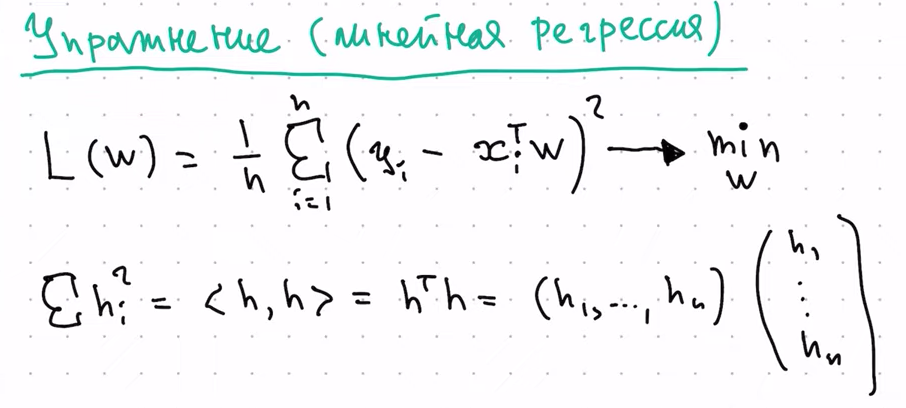 Упражнение (линейная регрессия)
L(w) = 1/n ∑_{i=1}^{n} (y_i − x_i^T w)^2 → min_w
∑ h_i^2 = <h, h> = h^T h = (h_1, ..., h_n) (h_1 ⋮ h_n)